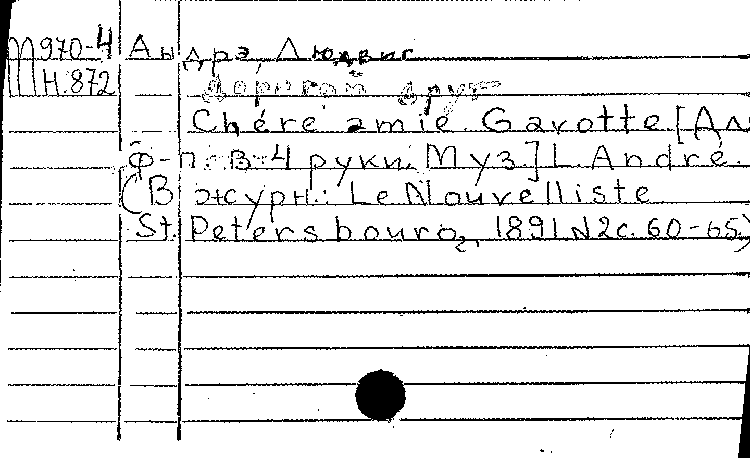 М970-4 Андрэ, Людвиг
Н.872 Дорогой друг
Chére amie. Gavotte [Дл
ф-п. в 4 руки. Муз.] L. André.
(В журн.: Le Nouvelliste
St. Petersbourg, 1891 N2 с. 60-65)